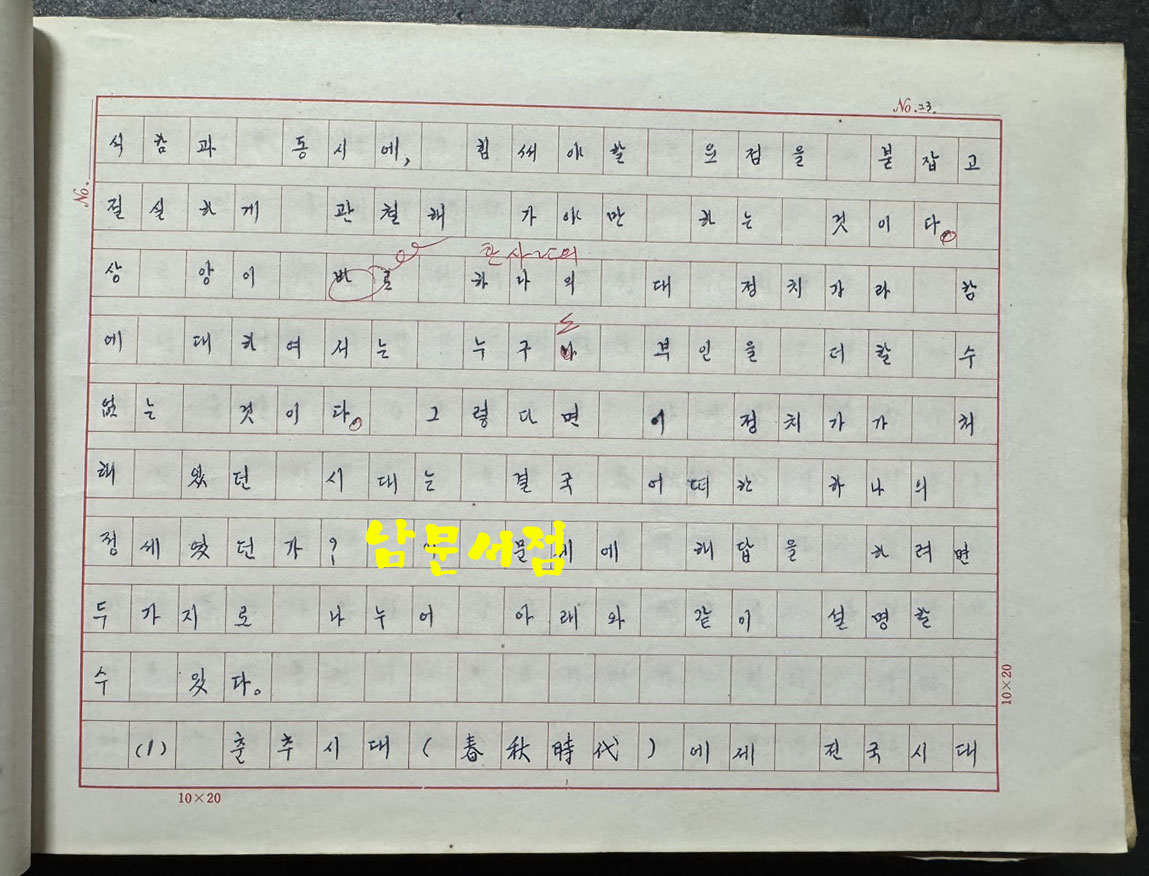 No. 23.
No.
석함과 동시에, 힘써야할 요점을 붙잡고
절실하게 관철해 가야만 하는 것이다.
상 앙이 바로 하나의 대 정치가라 함
에 대하여서는 누구나 부인을 더할 수
없는 것이다. 그렇다면 이 정치가가 처
해 있던 시대는 결국 어떠한 하나의
정세였던가? 문제에 해답을 하려면
남문서점
두가지로 나누어 아래와 같이 설명할
수 있다.
(1) 춘추시대(春秋時代)에제 전국시대
10×20
10×20